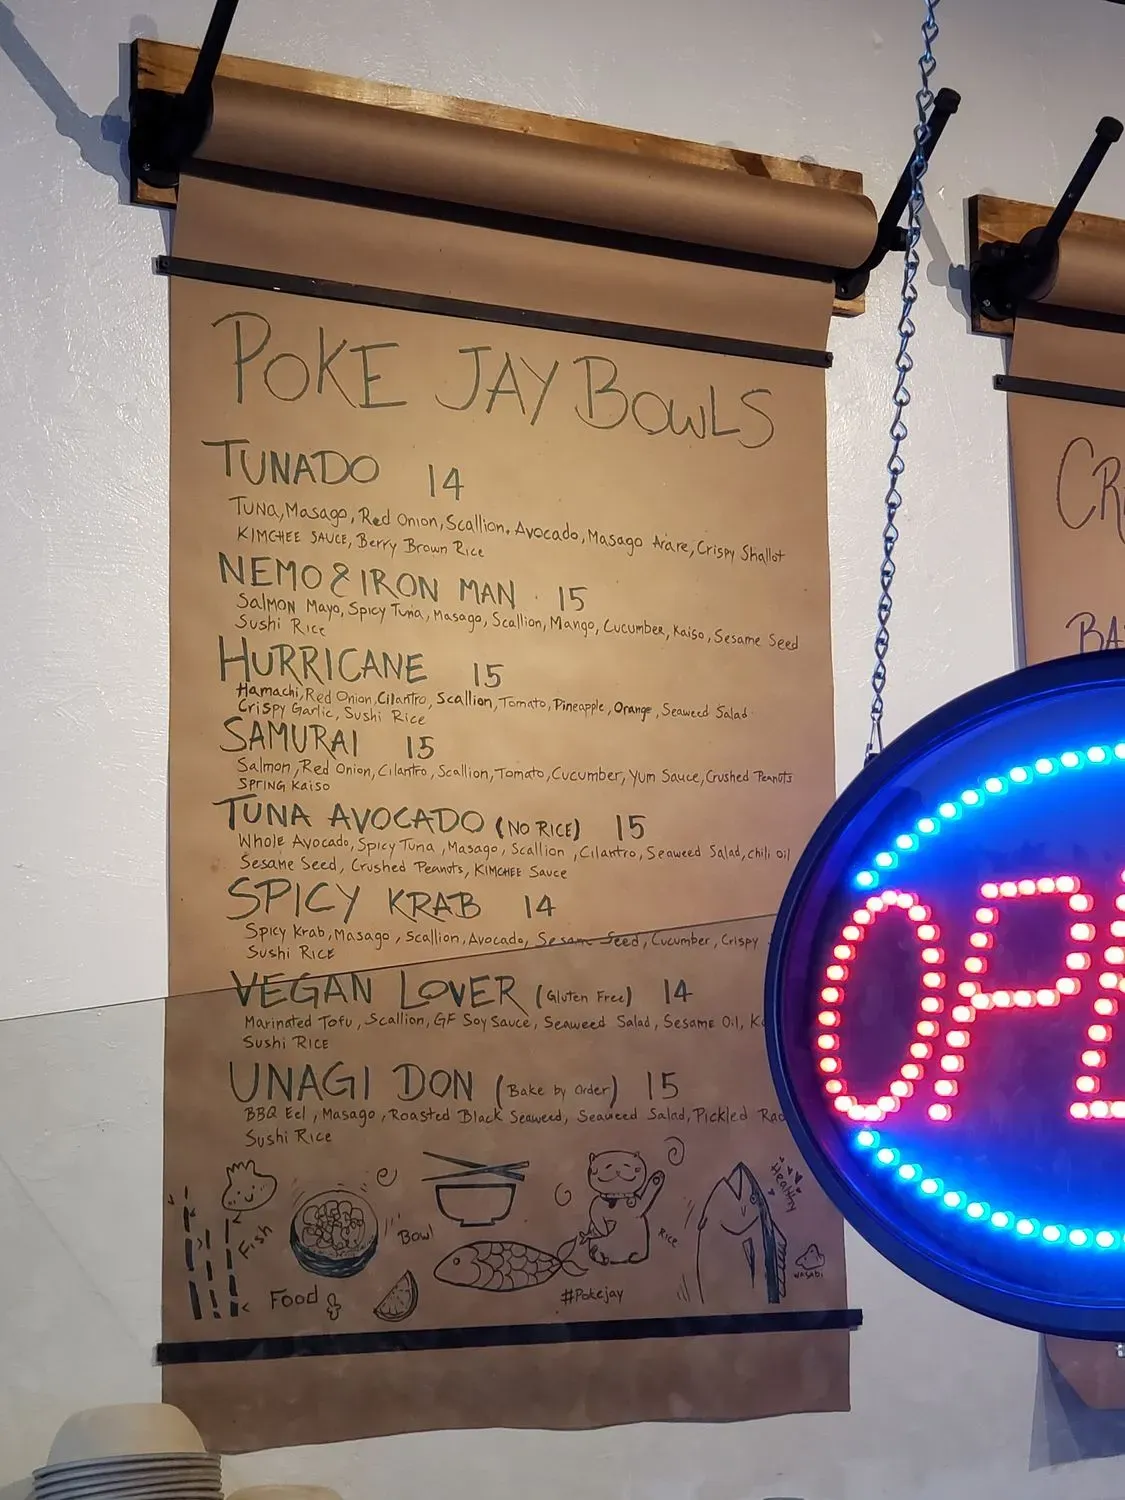 POKE JAY BOWLS
TUNADO 14
TUNA, Masago, Red Onion, Scallion, Avocado, Masago Arare, Crispy Shallot
KIMCHEE SAUCE, Berry Brown Rice
NEMO & IRON MAN 15
Salmon Mayo, Spicy Tuna, Masago, Scallion, Mango, Cucumber, Kaiso, Sesame Seed
Sushi Rice
HURRICANE 15
Hamachi, Red Onion, Cilantro, Scallion, Tomato, Pineapple, Orange, Seaweed Salad
Crispy Garlic, Sushi Rice
SAMURAI 15
Salmon, Red Onion, Cilantro, Scallion, Tomato, Cucumber, Yum Sauce, Crushed Peanuts
SPRING Kaiso
TUNA AVOCADO (NO RICE) 15
Whole Avocado, Spicy Tuna, Masago, Scallion, Cilantro, Seaweed Salad, Chili Oil
Sesame Seed, Crushed Peanuts, KIMCHEE Sauce
SPICY KRAB 14
Spicy Krab, Masago, Scallion, Avocado, Sesame Seed, Cucumber, Crispy
Sushi Rice
VEGAN LOVER (Gluten Free) 14
Marinated Tofu, Scallion, GF Soy Sauce, Seaweed Salad, Sesame Oil,
Sushi Rice
UNAGI DON (Bake by Order) 15
BBQ Eel, Masago, Roasted Black Seaweed, Seaweed Salad, Pickled
Sushi Rice
Fish
Food
Bowl
#Pokejay
Rice
Healthy
Wasabi
CR
BA
OPE